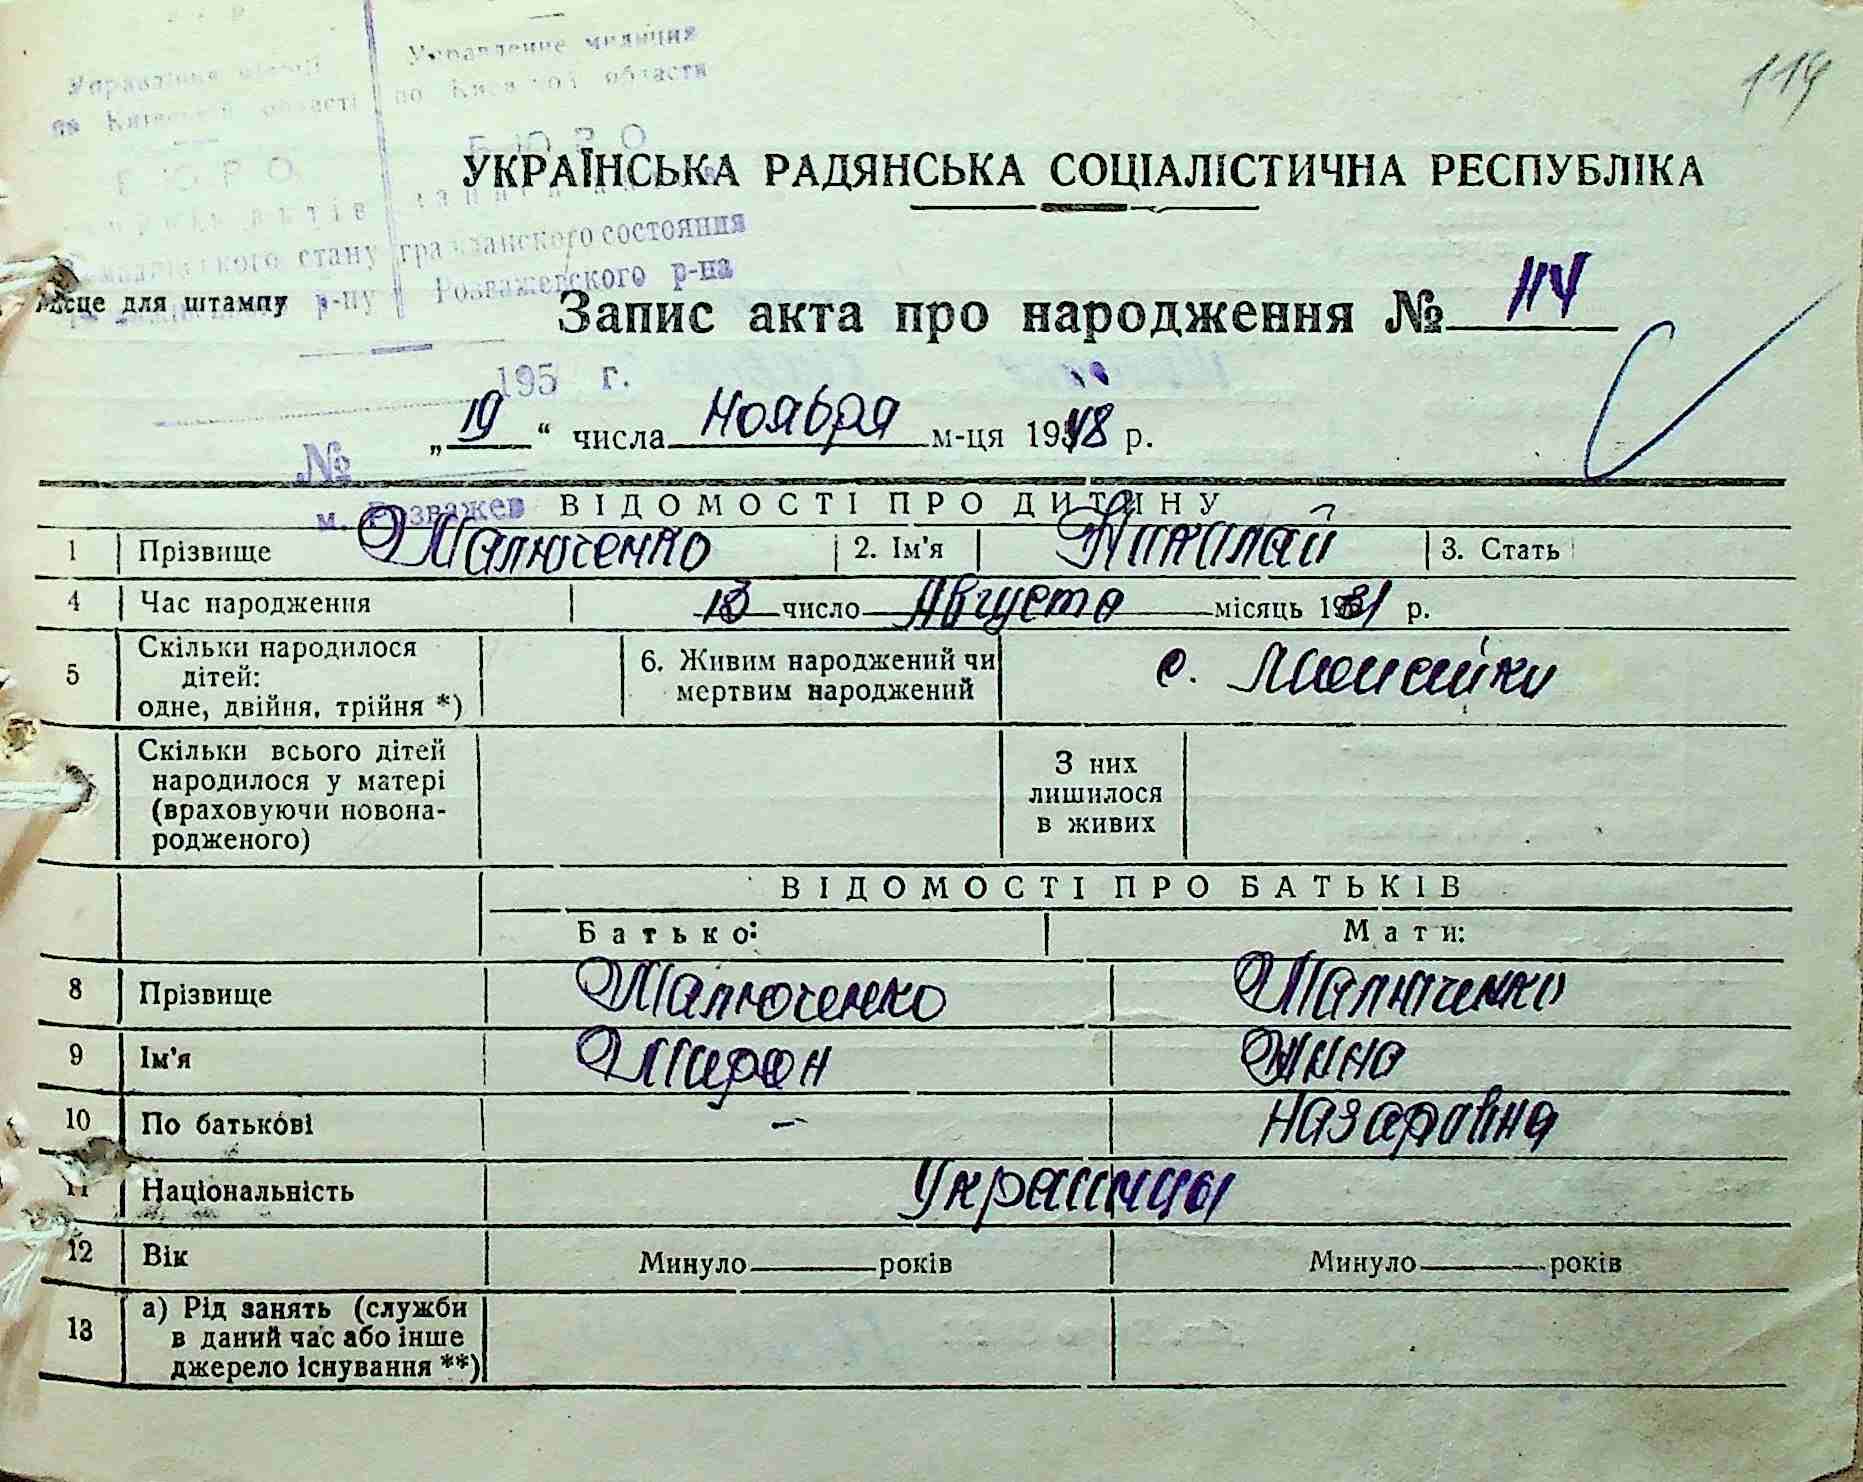 119
Управління міліції
по Київській області
БЮРО
актів
громадянського стану
р-ну
Управление милиции
по Киевской области
БЮРО
записи актов
гражданского состояния
Розважевского р-на
УКРАЇНСЬКА РАДЯНСЬКА СОЦІАЛІСТИЧНА РЕСПУБЛІКА
Місце для штампу
Запис акта про народження № 114
195 г.
„19“ числа Ноября м-ця 1948 р.
№
м. Розважев
ВІДОМОСТІ ПРО ДИТИНУ
1 Прізвище Малюченко 2. Ім'я Николай 3. Стать
4 Час народження 13 число Августа місяць 1931 р.
5 Скільки народилося дітей: одне, двійня, трійня *) 6. Живим народжений чи мертвим народжений с.
Скільки всього дітей народилося у матері (враховуючи новонародженого) З них лишилося в живих
ВІДОМОСТІ ПРО БАТЬКІВ
Батько: Мати:
8 Прізвище Малюченко Малюченко
9 Ім'я Мирон
10 По батькові – Назаровна
11 Національність Украинцы
12 Вік Минуло років Минуло років
13 а) Рід занять (служби в даний час або інше джерело існування **)